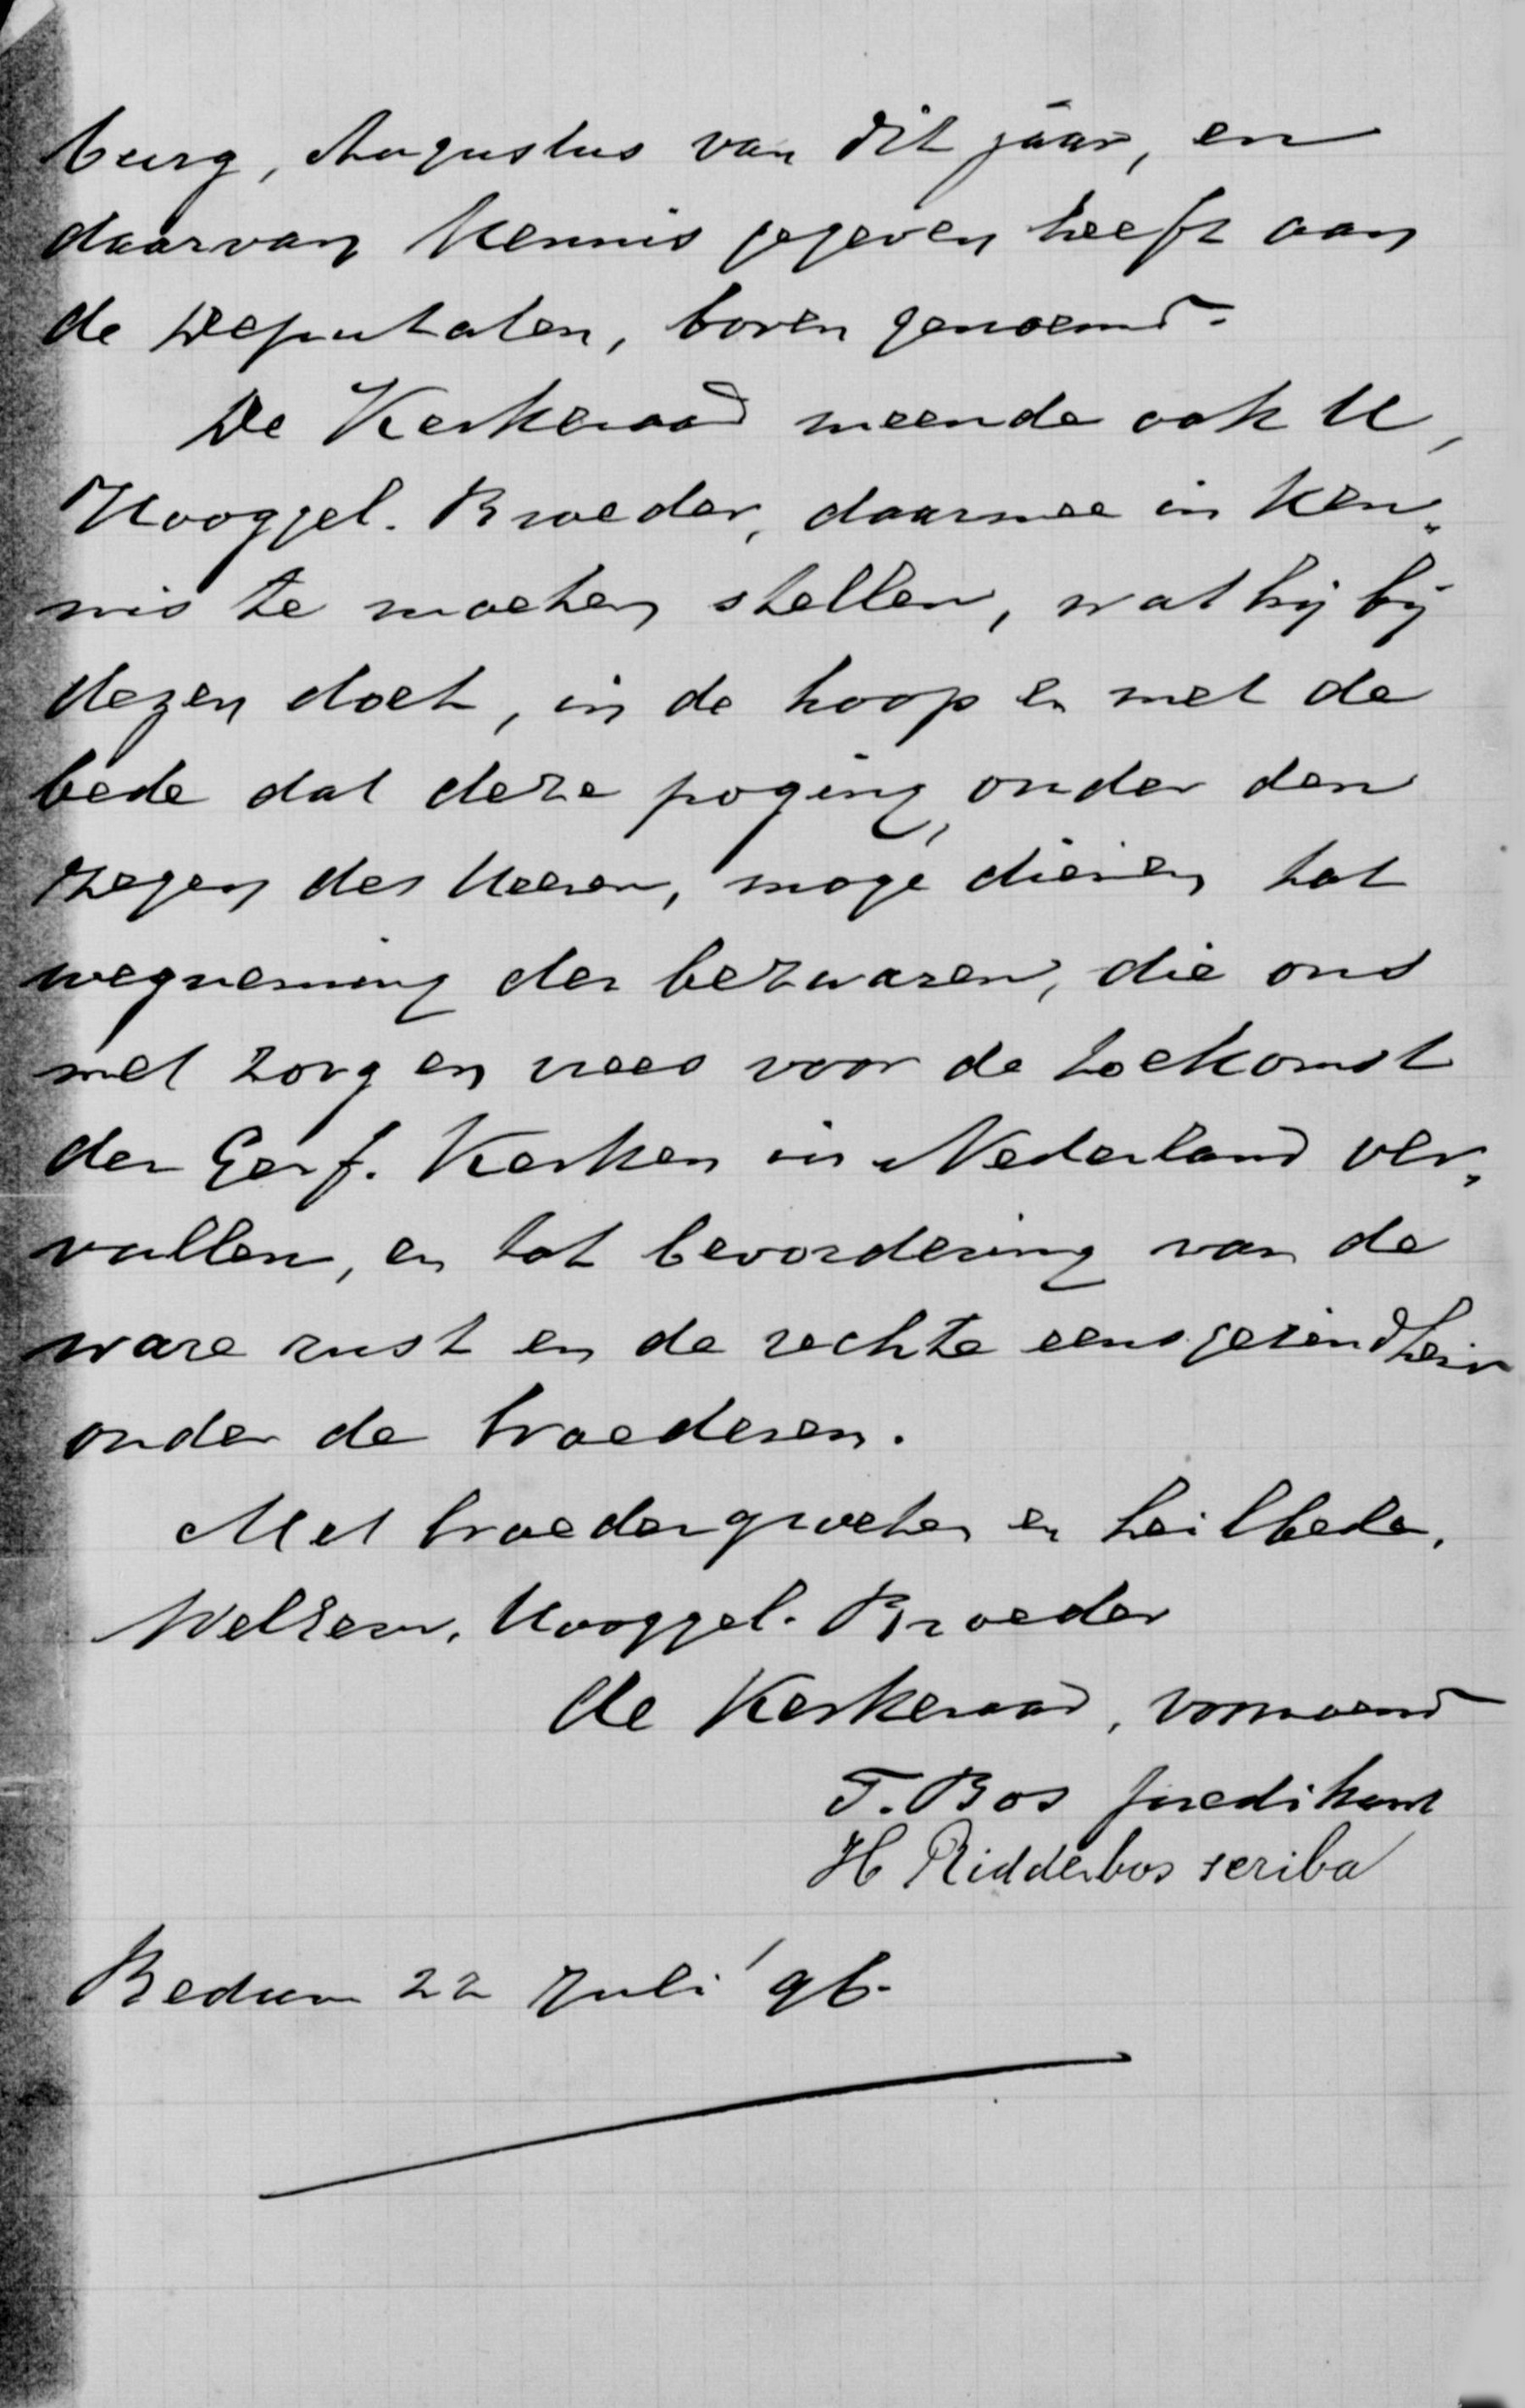 burg, Augustus van dit jaar, en
daarvan kennis gegeven heeft aan
de Deputaten, boven genoemd.
De Kerkeraad meende ook U,
Hooggel. Broeder, daarmee in ken„
nis te moeten stellen, wat hij bij
dezen doet, in de hoop en met de
bede dat deze poging, onder den
zegen des Heeren, moge dienen tot
wegneming der bezwaren, die ons
met zorg en vrees voor de toekomst
der Geref. Kerken in Nederland ver„
vullen, en tot bevordering van de
ware rust en de rechte eensgezindheid
onder de broederen.
Met broedergroeten en heilbede,
WelEerw. Hooggel. Broeder
de Kerkeraad, voornoemd
T. Bos predikant
H Ridderbos scriba
Bedum 22 Juli '96.